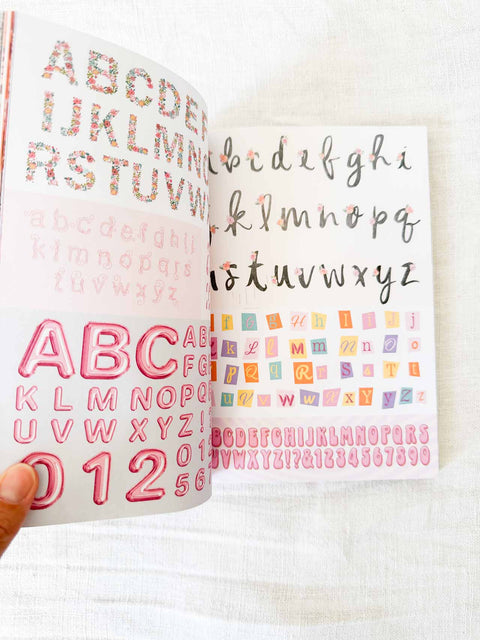 ABCDEF
IJKLMN
RSTUVW
abcdefghij
klmnopqrs
tuvwxyz
ABC
AB
FG
KLMNOPQ
UVWXYZ!
012
01
56
bcdefghi
klmnopq
stuvwxyz
fghHIIJ
KLLMmNo
PQRSTt
uVWWXYZZ
BCDEFGHIJKLMNOPQRS
VWXYZ!?&1234567890